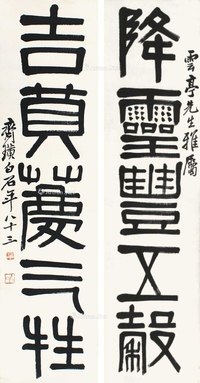 雲亭先生雅屬
降靈豐五穀
吉蓂薦三牲
齊璜白石年八十三